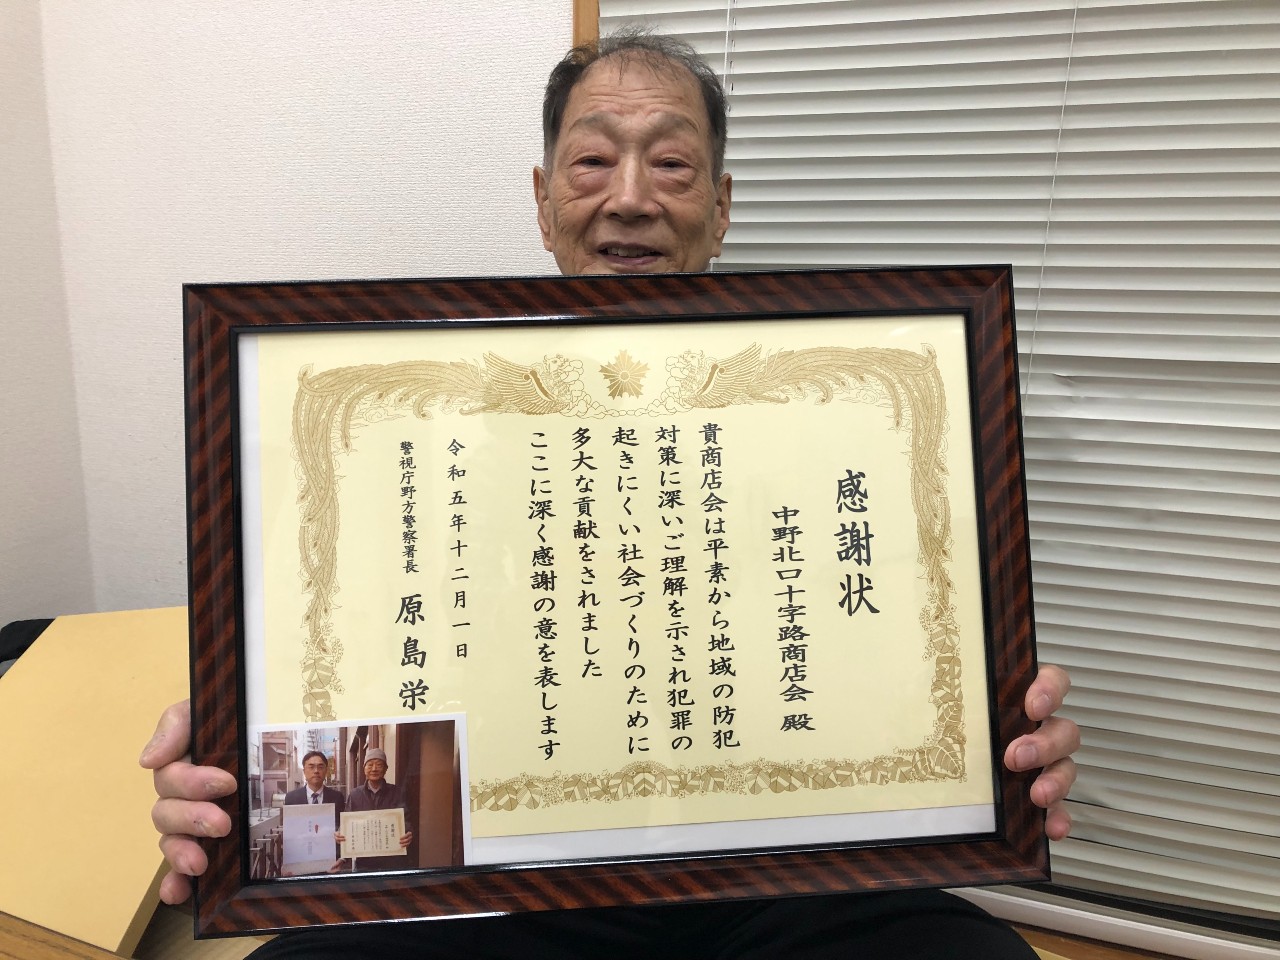 感謝状
中野北口十字路商店会 殿
貴商店会は平素から地域の防犯
対策に深いご理解を示され犯罪の
起きにくい社会づくりのために
多大な貢献をされました
ここに深く感謝の意を表します
令和五年十二月一日
警視庁野方警察署長 原島栄